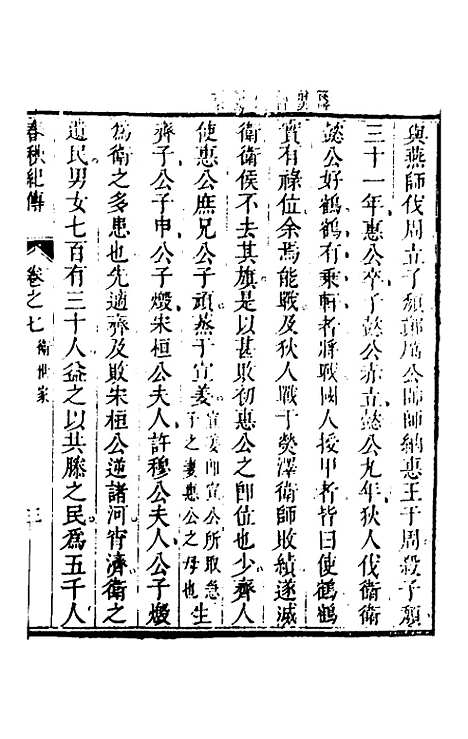 與燕師伐周立子頽鄭厲公帥師納惠王于周殺子頽
三十一年惠公卒子懿公赤立懿公九年狄人伐衛衛
懿公好鶴鶴有乗軒者將戰國人授甲者皆曰使鶴鶴
實有祿位余焉能戰及狄人戰于熒澤衛師敗績遂滅
衛衛侯不去其旗是以甚敗初惠公之卽位也少齊人
使惠公庶兄公子頑蒸于宣姜宣姜卽宣公所取急子之妻惠公之母也生
齊子公子申公子燬宋桓公夫人許穆公夫人公子燬
爲衛之多患也先適齊及敗宋桓公逆諸河宵濟衛之
遺民男女七百有三十人益之以共滕之民爲五千人
春秋紀傳
卷之七衛世家
三